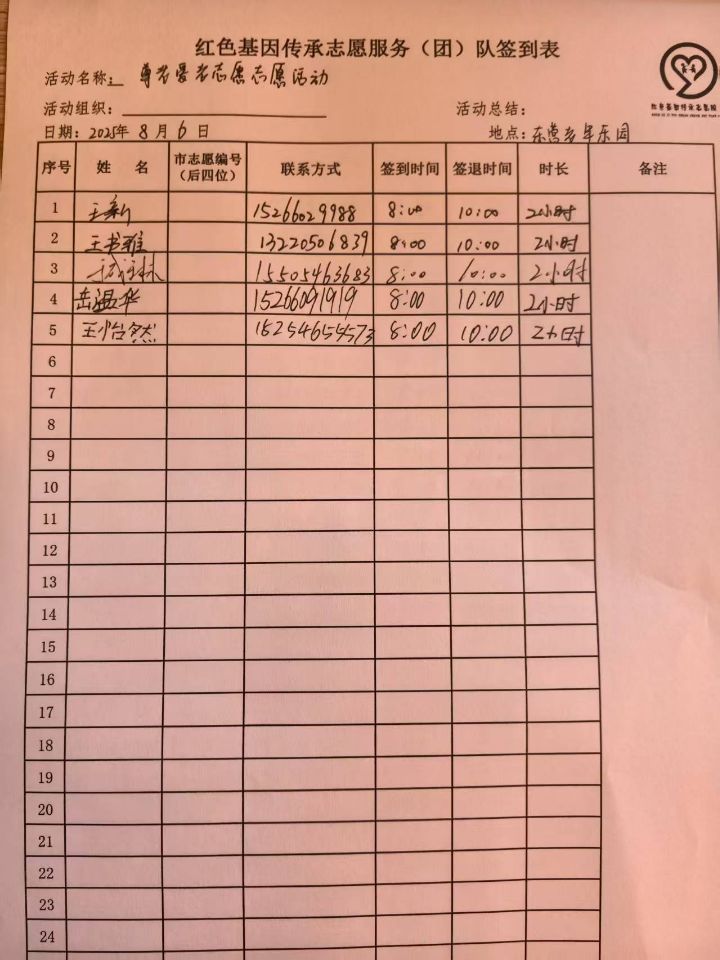 红色基因传承志愿服务（团）队签到表
活动名称： 尊老爱老志愿志愿活动
活动组织：
活动总结：
日期：2025年 8 月 6 日
地点：东营老年乐园
序号 姓 名 市志愿编号（后四位） 联系方式 签到时间 签退时间 时长 备注
1 王新 15266029988 8:00 10:00 2小时
2 王书雅 13220506839 8:00 10:00 2小时
3 15505463683 8:00 10:00 2小时
4 岳温华 15266091919 8:00 10:00 2小时
5 王怡然 15254655573 8:00 10:00 2小时
6
7
8
9
10
11
12
13
14
15
16
17
18
19
20
21
22
23
24